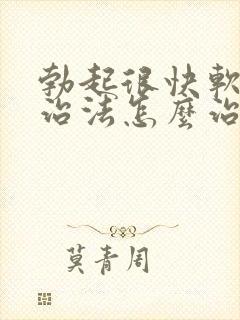 勃起很快軟
治法怎麼治
莫青周